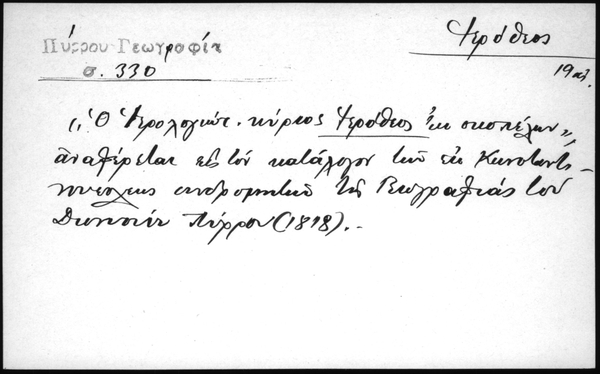 Πύρρου Γεωγραφία
σ. 330
Ἱερόθεος
19 αἰ.
"Ὁ Ἱερολογιώτ. κύριος Ἱερόθεος ἐκ Σκοπέλων"
ἀναφέρεται εἰς τὸν κατάλογον τῶν ἐκ Κωνσταντι-
νουπόλεως συνδρομητῶν τῆς Γεωγραφίας τοῦ
Διονυσίου Πύρρου (1818).-